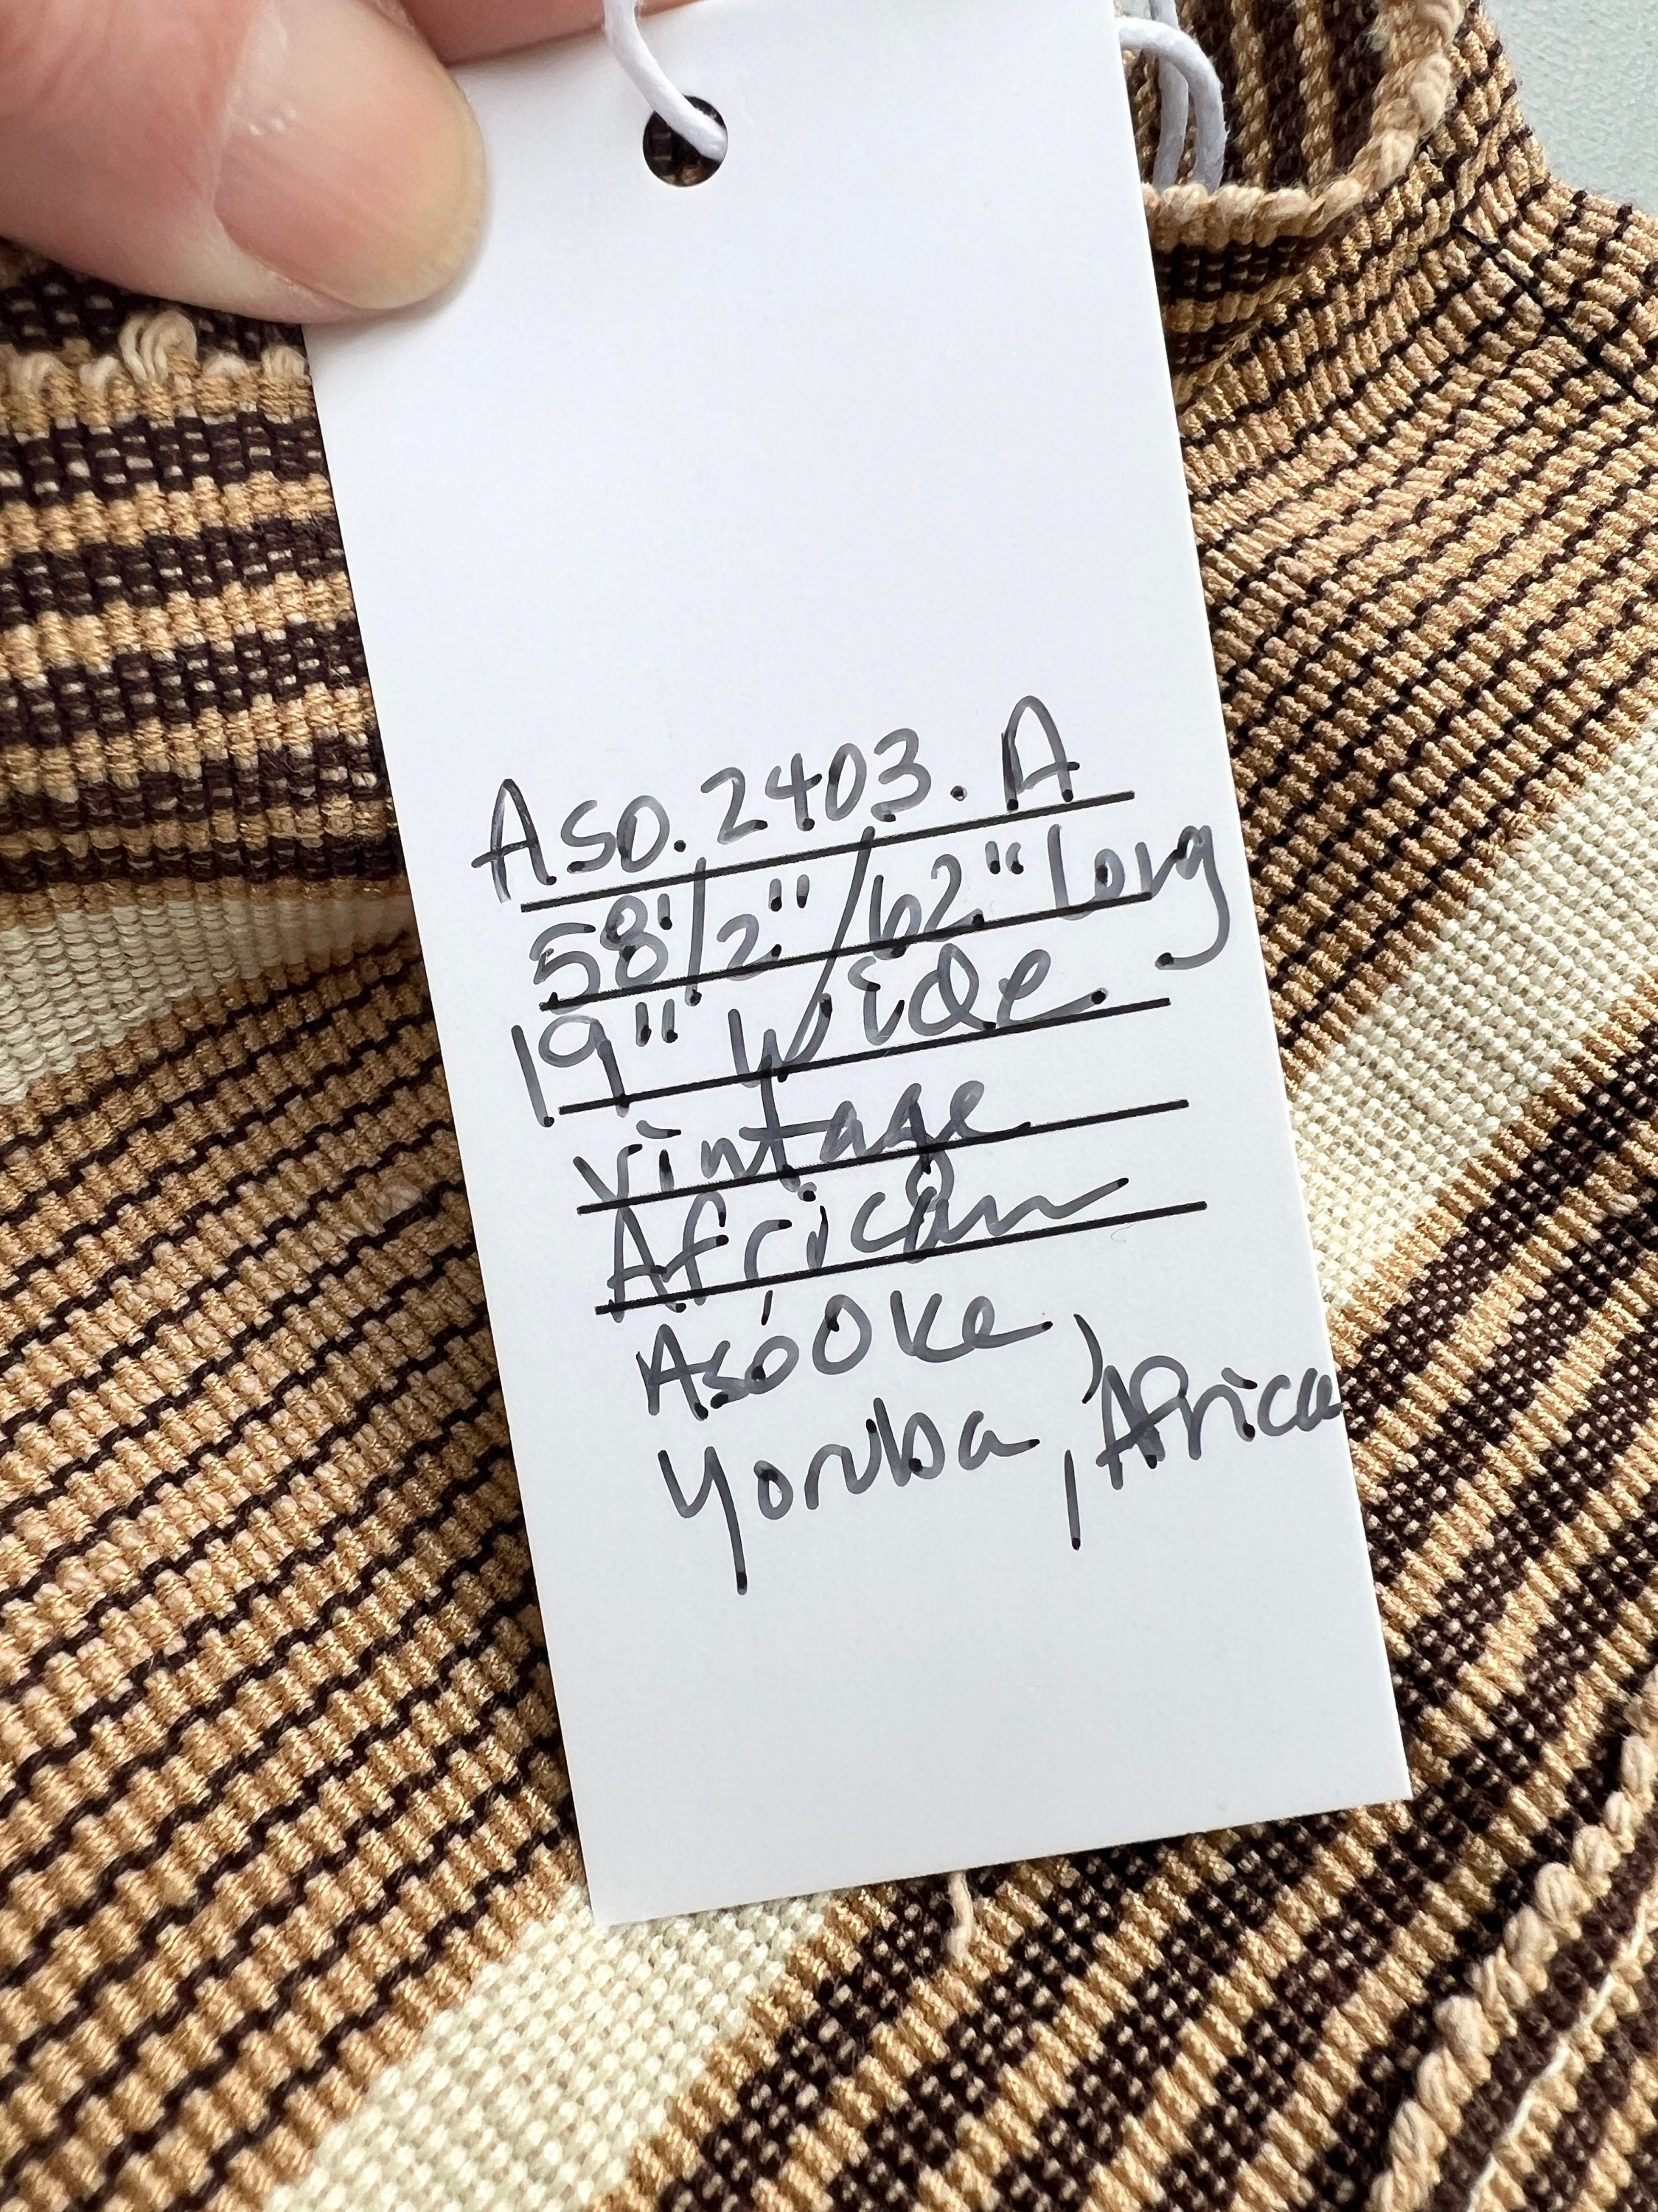 Aso.2403.A
58 1/2"/62" long
19" wide
vintage
African
Aso Oke,
Yoruba, Africa